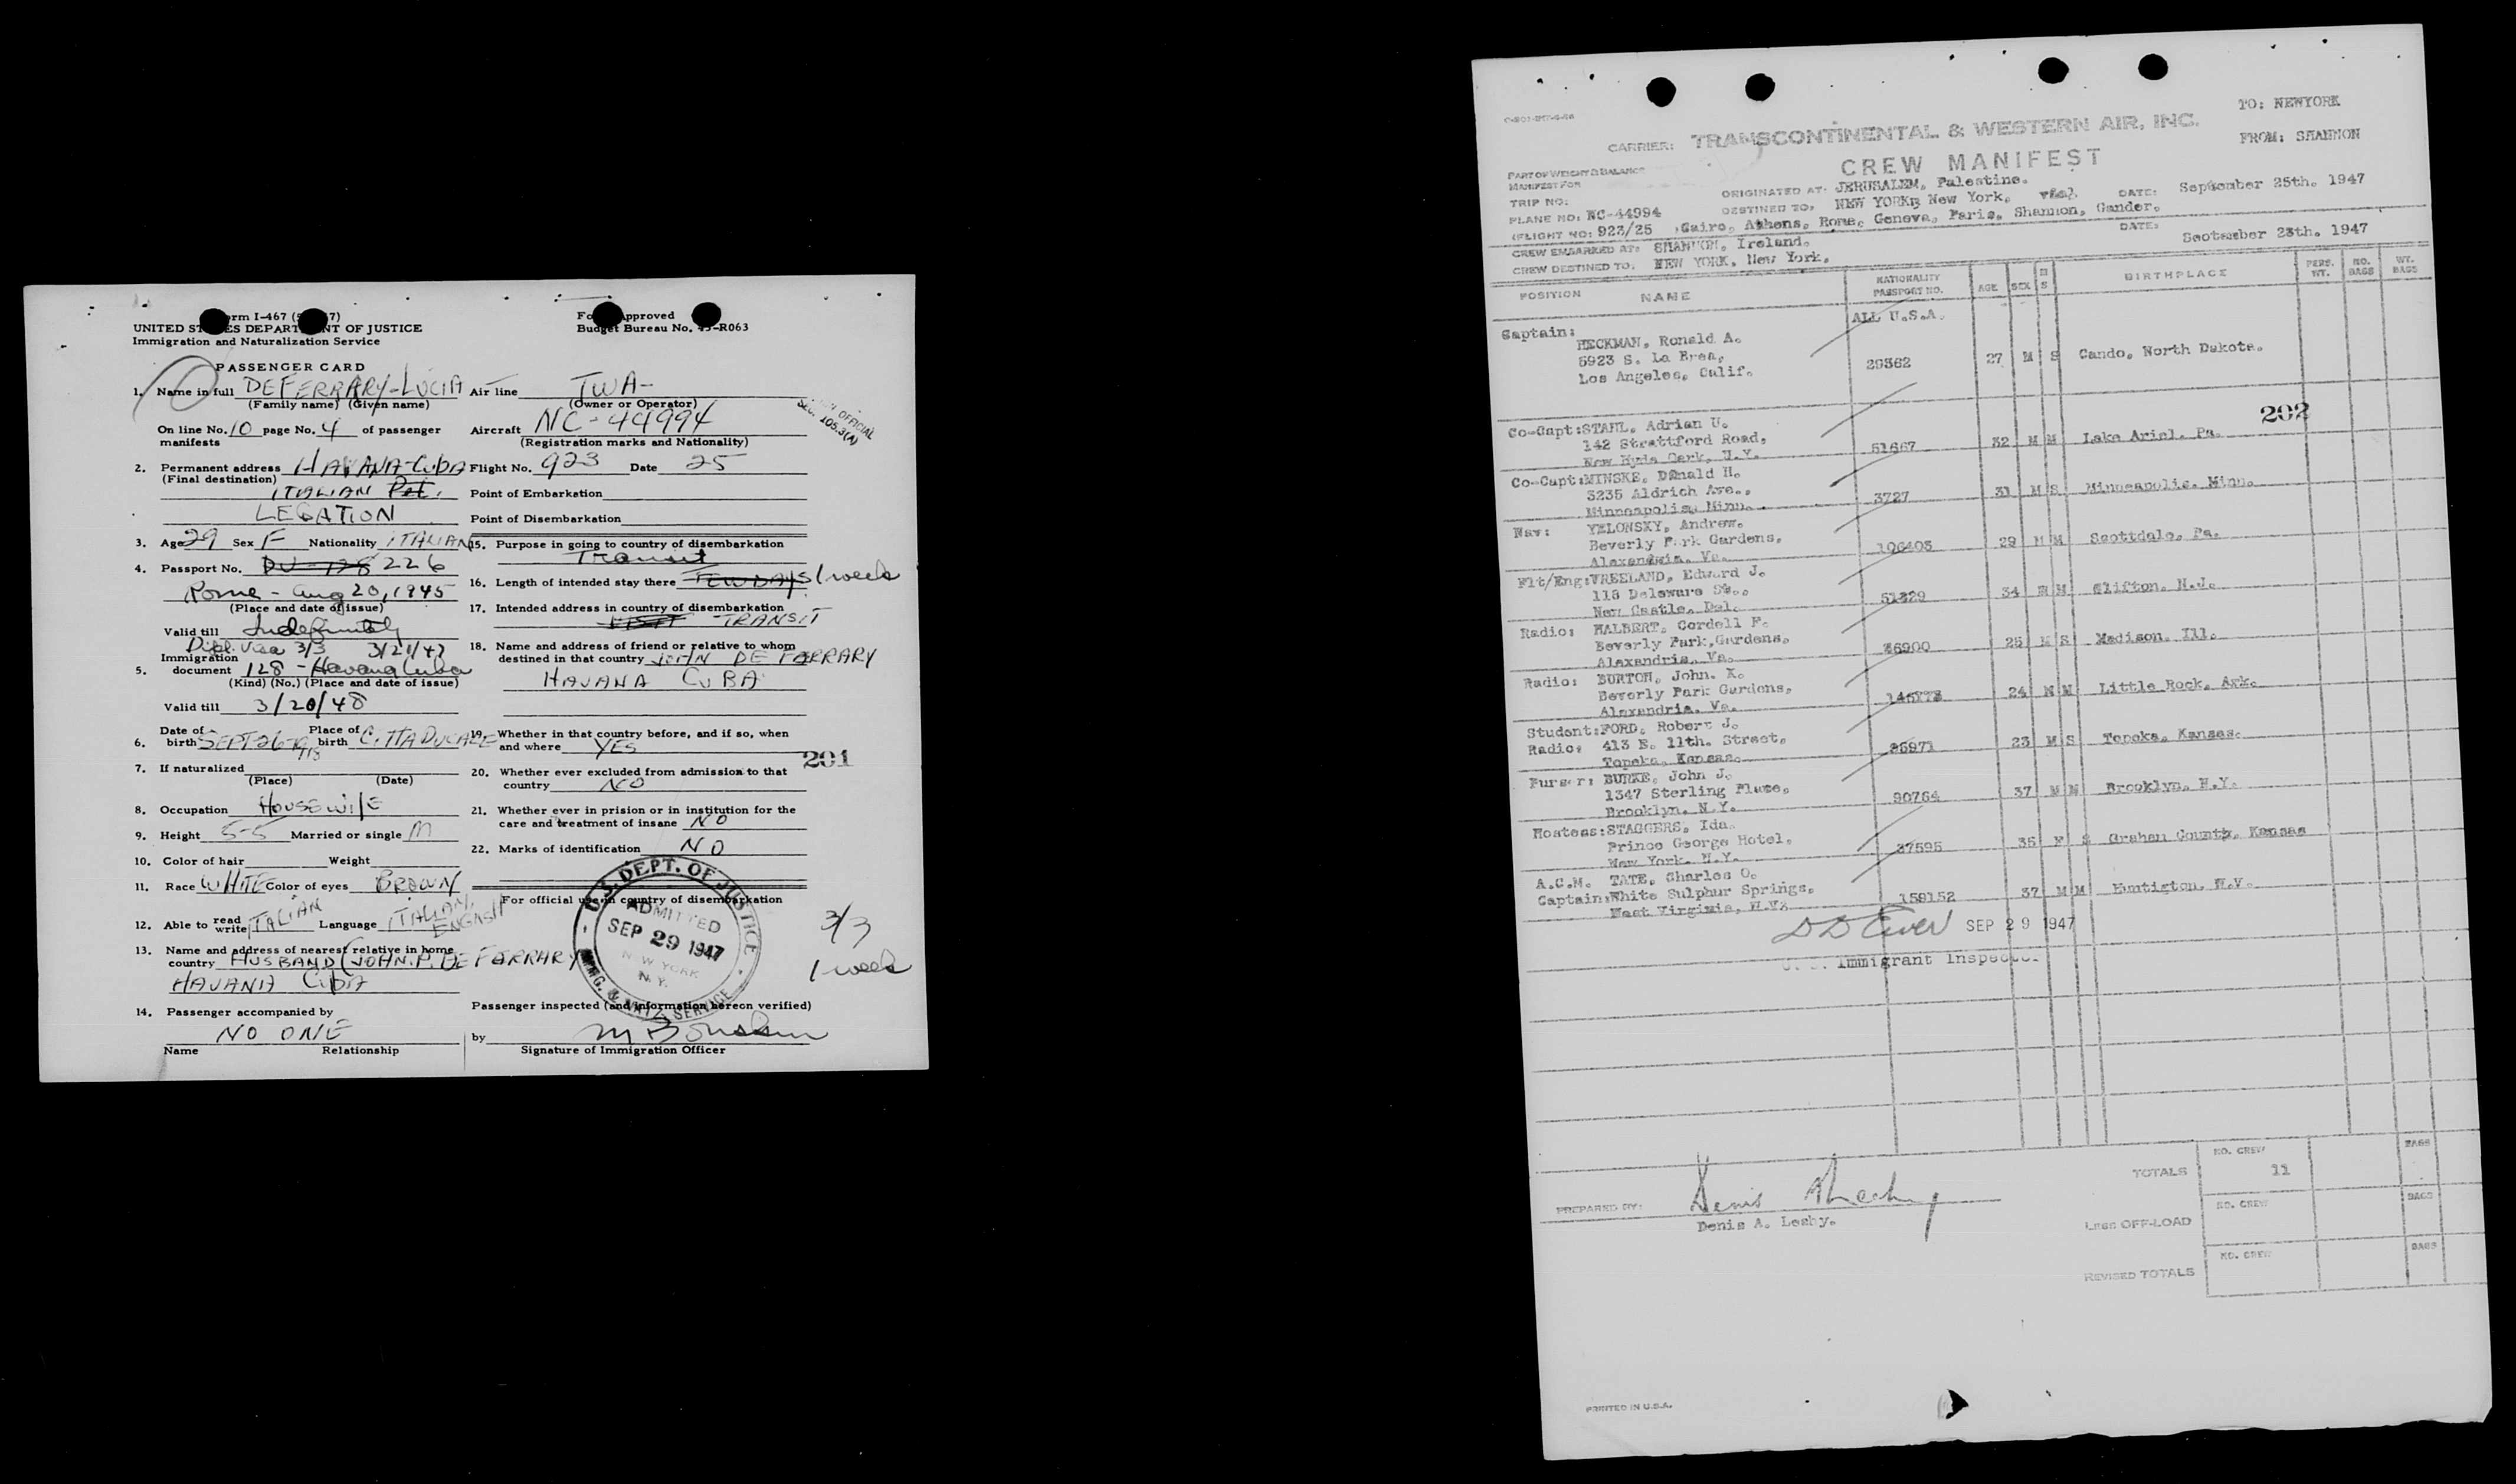 Form I-467
UNITED STATES DEPARTMENT OF JUSTICE
Immigration and Naturalization Service
Form Approved
Budget Bureau No. 43-R063
PASSENGER CARD
10
1. Name in full DEFERRARY-LUCIA
(Family name) (Given name)
On line No. 10 page No. 4 of passenger
manifests
2. Permanent address HAVANA-CUBA
(Final destination)
ITALIAN
LEGATION
3. Age 29 Sex F Nationality ITALIAN
4. Passport No. DV-128 226
Rome - Aug 20, 1945
(Place and date of issue)
Valid till Indefinitely
Dipl. Visa 3/3 3/21/47
Immigration
5. document 128 - Havana Cuba
(Kind) (No.) (Place and date of issue)
Valid till 3/20/48
6. Date of birth SEPT 26 Place of birth CITTADUCALE
7. If naturalized
(Place) (Date)
8. Occupation HOUSEWIFE
9. Height 5-5 Married or single M
10. Color of hair Weight
11. Race WHITE Color of eyes BROWN
12. Able to read write ITALIAN Language ITALIAN, ENGLISH
13. Name and address of nearest relative in home
country HUSBAND (JOHN.P. DE FERRARY
HAVANA CUBA
14. Passenger accompanied by
NO ONE
Name Relationship
Air line TWA-
(Owner or Operator)
Aircraft NC-44994
(Registration marks and Nationality)
OFFICIAL
105.3(A)
Flight No. 923 Date 25
Point of Embarkation
Point of Disembarkation
15. Purpose in going to country of disembarkation
Transit
16. Length of intended stay there FEW DAYS 1 week
17. Intended address in country of disembarkation
VISIT - TRANSIT
18. Name and address of friend or relative to whom
destined in that country JOHN DE FERRARY
HAVANA CUBA
19. Whether in that country before, and if so, when
and where YES
201
20. Whether ever excluded from admission to that
country NO
21. Whether ever in prision or in institution for the
care and treatment of insane NO
22. Marks of identification NO
For official use in country of disembarkation
U.S. DEPT. OF JUSTICE
ADMITTED
SEP 29 1947
NEW YORK
N.Y.
IMMIG. & NATZ. SERVICE
3/3
1 week
Passenger inspected (and information hereon verified)
by
Signature of Immigration Officer
TO: NEWYORK
FROM: SHANNON
CARRIER: TRANSCONTINENTAL & WESTERN AIR, INC.
CREW MANIFEST
PART OF WEIGHT & BALANCE
MANIFEST FOR
TRIP NO:
PLANE NO: NC-44994
FLIGHT NO: 923/25
ORIGINATED AT: JERUSALEM, Palestine.
DESTINED TO, NEW YORK, New York. via. DATE: September 25th. 1947
Cairo, Athens, Rome, Geneva, Paris, Shannon, Gander.
CREW EMBARKED AT: SHANNON, Ireland. DATE:
CREW DESTINED TO: NEW YORK, New York. September 28th. 1947
POSITION NAME NATIONALITY PASSPORT NO. AGE SEX M S BIRTHPLACE PERS. WT. NO. BAGS WT. BAGS
ALL U.S.A.
Captain:
HECKMAN, Ronald A.
5923 S. La Brea, 29362 27 M S Cando, North Dakota.
Los Angeles, Calif.
202
Co-Capt: STAHL, Adrian U.
142 Strattford Road, 51667 32 M M Lake Ariel. Pa.
New Hyde Park, N.Y.
Co-Capt: MINSKE, Donald H.
3235 Aldrich Ave., 3727 31 M S Minneapolis. Minn.
Minneapolis, Minn.
Nav: YELONSKY, Andrew.
Beverly Park Gardens, 106403 29 M M Scottdale, Pa.
Alexandria, Va.
Flt/Eng: VREELAND, Edward J.
118 Delaware St., 51329 34 M M Clifton, N.J.
New Castle, Del.
Radio: HALBERT, Cordell F.
Beverly Park, Gardens, 36900 25 M S Madison, Ill.
Alexandria, Va.
Radio: BURTON, John. K.
Beverly Park Gardens, 24 M M Little Rock, Ark.
Alexandria. Va.
Student: FORD, Robert J.
Radio: 413 E. 11th. Street, 23 M S Topeka, Kansas.
Topeka, Kansas.
Purser: BURKE, John J.
1347 Sterling Place, 90764 37 M M Brooklyn, N.Y.
Brooklyn, N.Y.
Hostess: STAGGERS, Ida.
Prince George Hotel, 37595 35 F S Graham County, Kansas
New York. N.Y.
A.C.M. TATE, Charles O.
Captain: White Sulphur Springs, 159152 37 M M Huntigton, W.V.
West Virginia, W.V.
SEP 29 1947
U. S. Immigrant Inspector
TOTALS NO. CREW 11 BAGS
LESS OFF-LOAD NO. CREW BAGS
REVISED TOTALS NO. CREW BAGS
PREPARED BY:
Denis A. Leahy.
PRINTED IN U.S.A.